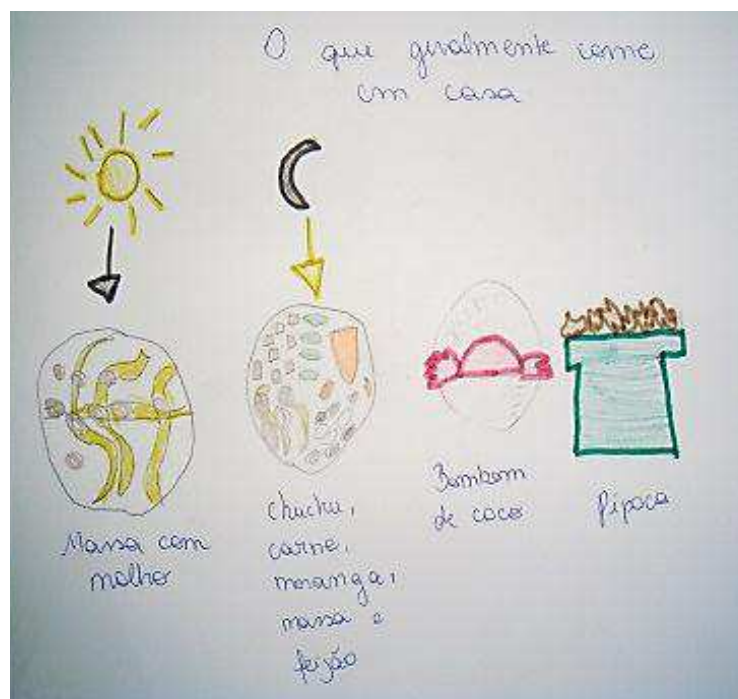 O que geralmente come
em casa
Massa com
molho
chuchu,
carne,
moranga,
massa e
feijão
Bombom
de coco
Pipoca